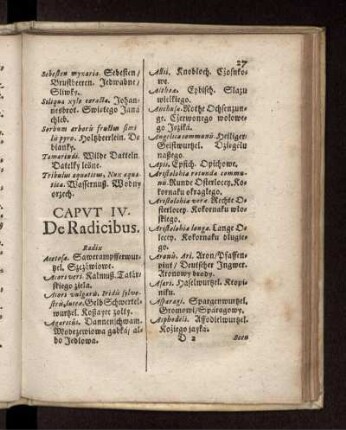 27
Sebesten myxaria. Sebesten/
Brustbeeren. Jedwabne/
Sliwke.
Siliqua xylo caracta. Johan-
nesbrot. Swietego Janá
chleb.
Sorbum arbaru fructus simi
lis pyro. Holtzbeerlein. De
bianky.
Tamarindi. Wilde Datteln
Datelky leśne.
Tribulus aquaticus, Nux aqua
tica. Wassernuß. Wodny
orzech.
CAPVT IV.
De Radicibus.
Radix
Acetosa. Sawerampfferwur
tzel. Szczáwiowe.
Acori veri. Kalmuß. Tatár-
skiego ziela.
Acori vulgaris. Iridis sylve-
stris, luteae. Gelb Schwertel-
wurtzel. Kosáyec zolty.
Agarici. Dannenschwam.
Modrzewiowa gabká/ al-
bo Jedlowa.
Allii. Knobloch. Czosnko-
we.
Althaea. Eybisch. Slazu
wielkiego.
Anchusa. Rothe Ochsenzun-
ge. Czerwonego wolowe-
go Jezika.
Angelica communis Heiliger-
Geistwurtzel. Dziegielu
naßego.
Apii. Epsich. Opichowe.
Aristolochia rotunda commu-
nis. Runde Osterlocey. Ko-
kornaku okraglego.
Aristolochia vera. Rechte O-
sterlocey. Kokornaku wlo-
skiego.
Aristolochia longa. Lange O-
locey. Kokornaku dlugie-
go.
Aronis. Ari. Aron/Pfaffen-
pint/ Deutscher Ingwer.
Aronowy biadry.
Asari. Haselwurtzel. Kopyt-
niku.
Asparagi. Spargenwurtzel.
Gromowi/Sparagowy.
Asphodeli. Affodielwurtzel.
Koziego jayka.
D 2